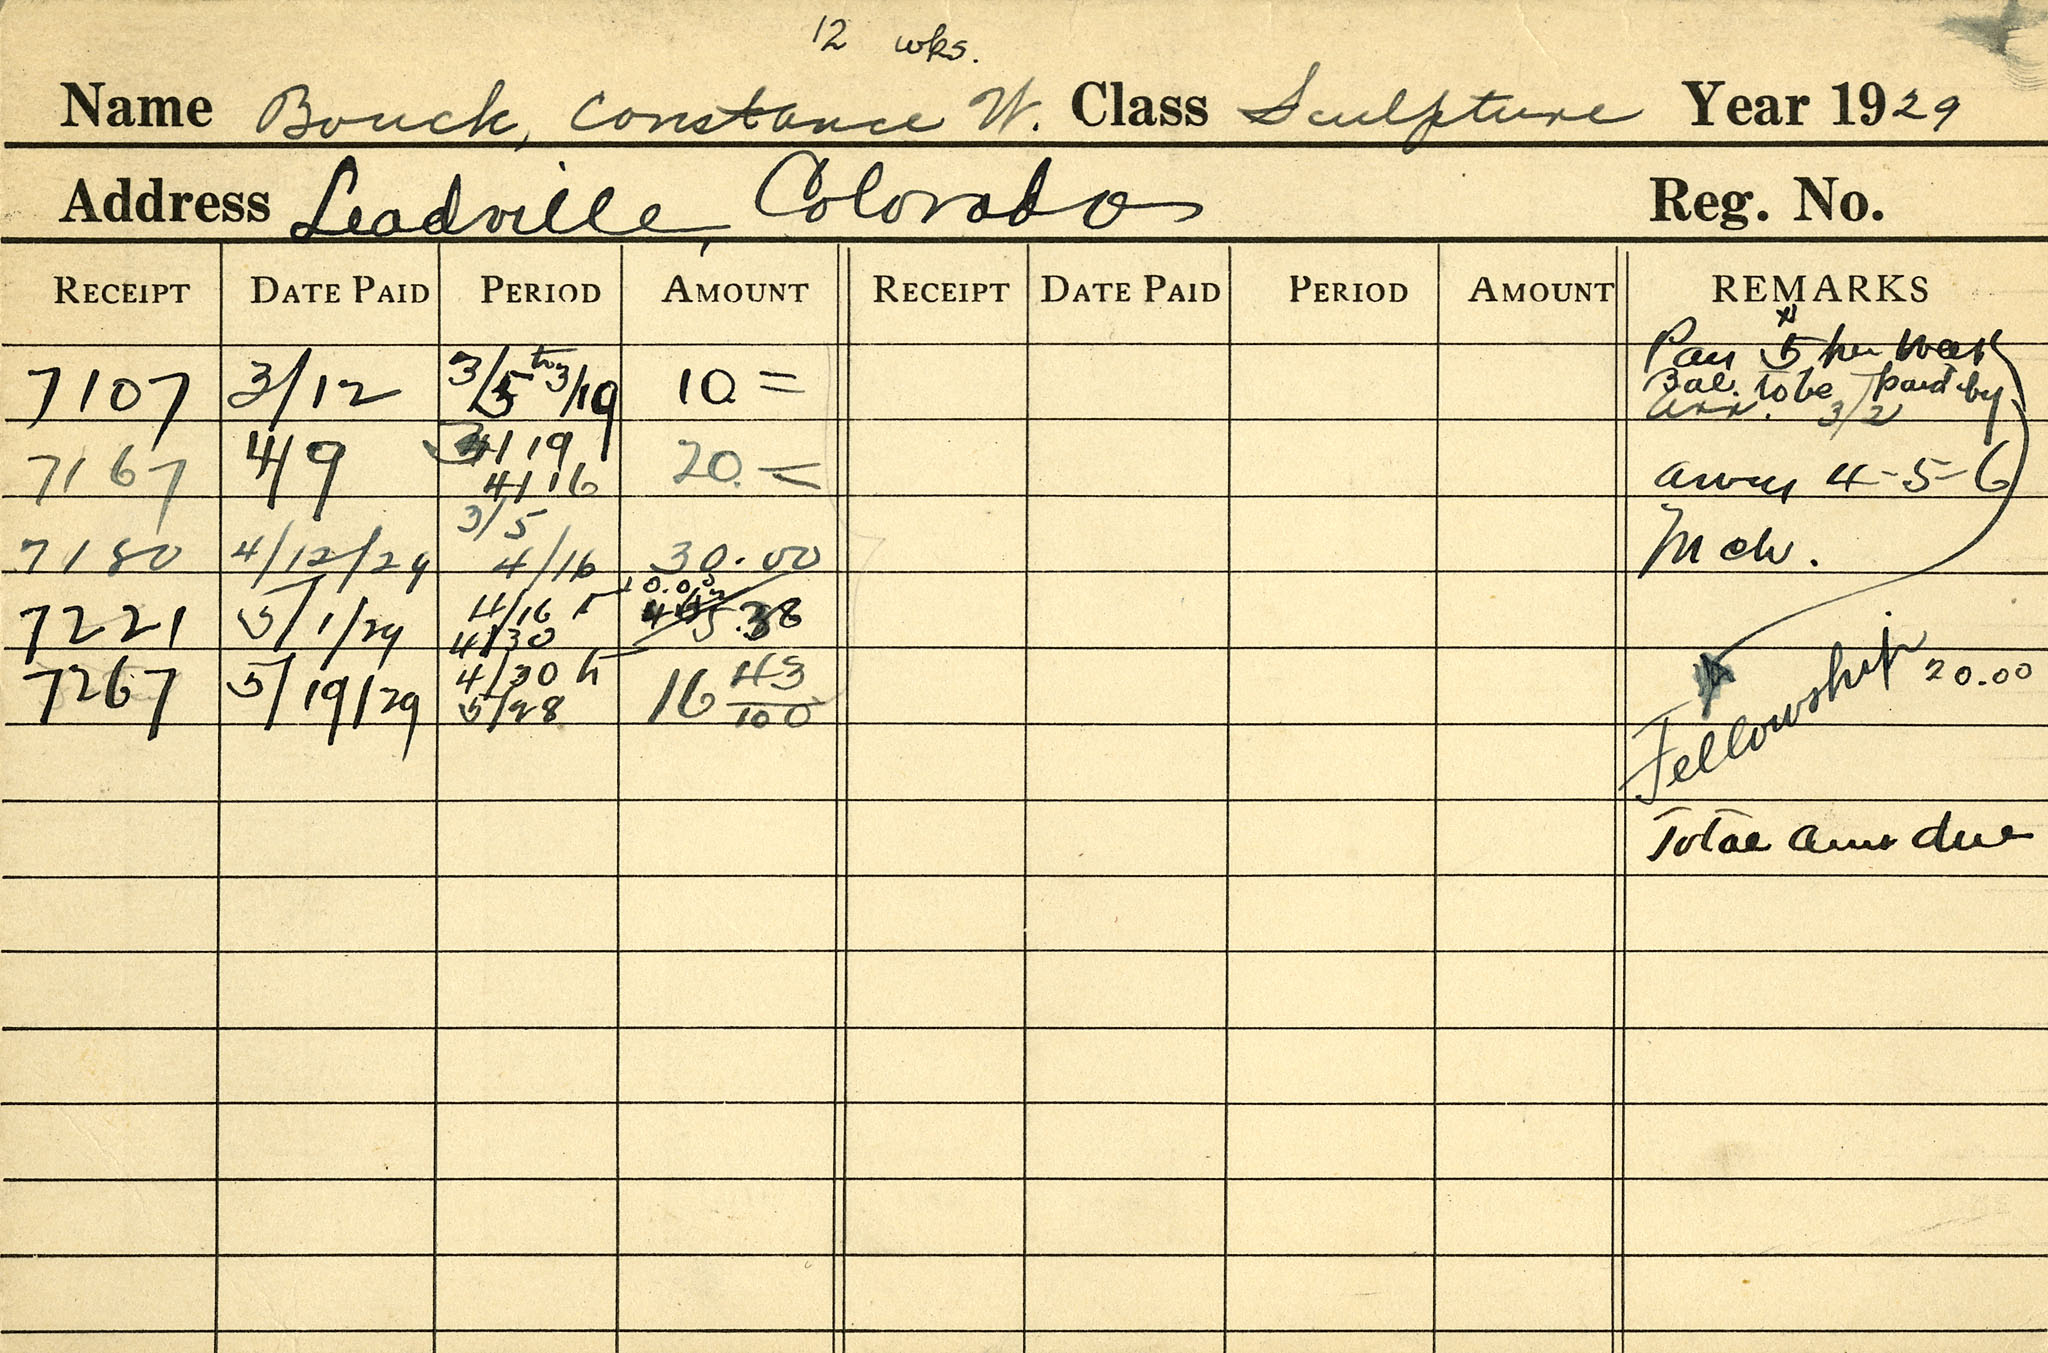 12 wks.
Name Bouck, Constance W. Class Sculpture Year 1929
Address Leadville, Colorado Reg. No.
RECEIPT DATE PAID PERIOD AMOUNT RECEIPT DATE PAID PERIOD AMOUNT REMARKS
Pay 5 per week
7107 3/12 3/5 to 3/19 10 = Bal. to be paid by
3/2
7167 4/9 4/19 20. = away 4-5-6
4/16
3/5
7180 4/12/29 4/16 30.00 Mch.
10.00
7221 5/1/29 4/16 to
4/30
7267 5/19/29 4/30 to 16 43/100
5/28
Fellowship 20.00
Total amt due